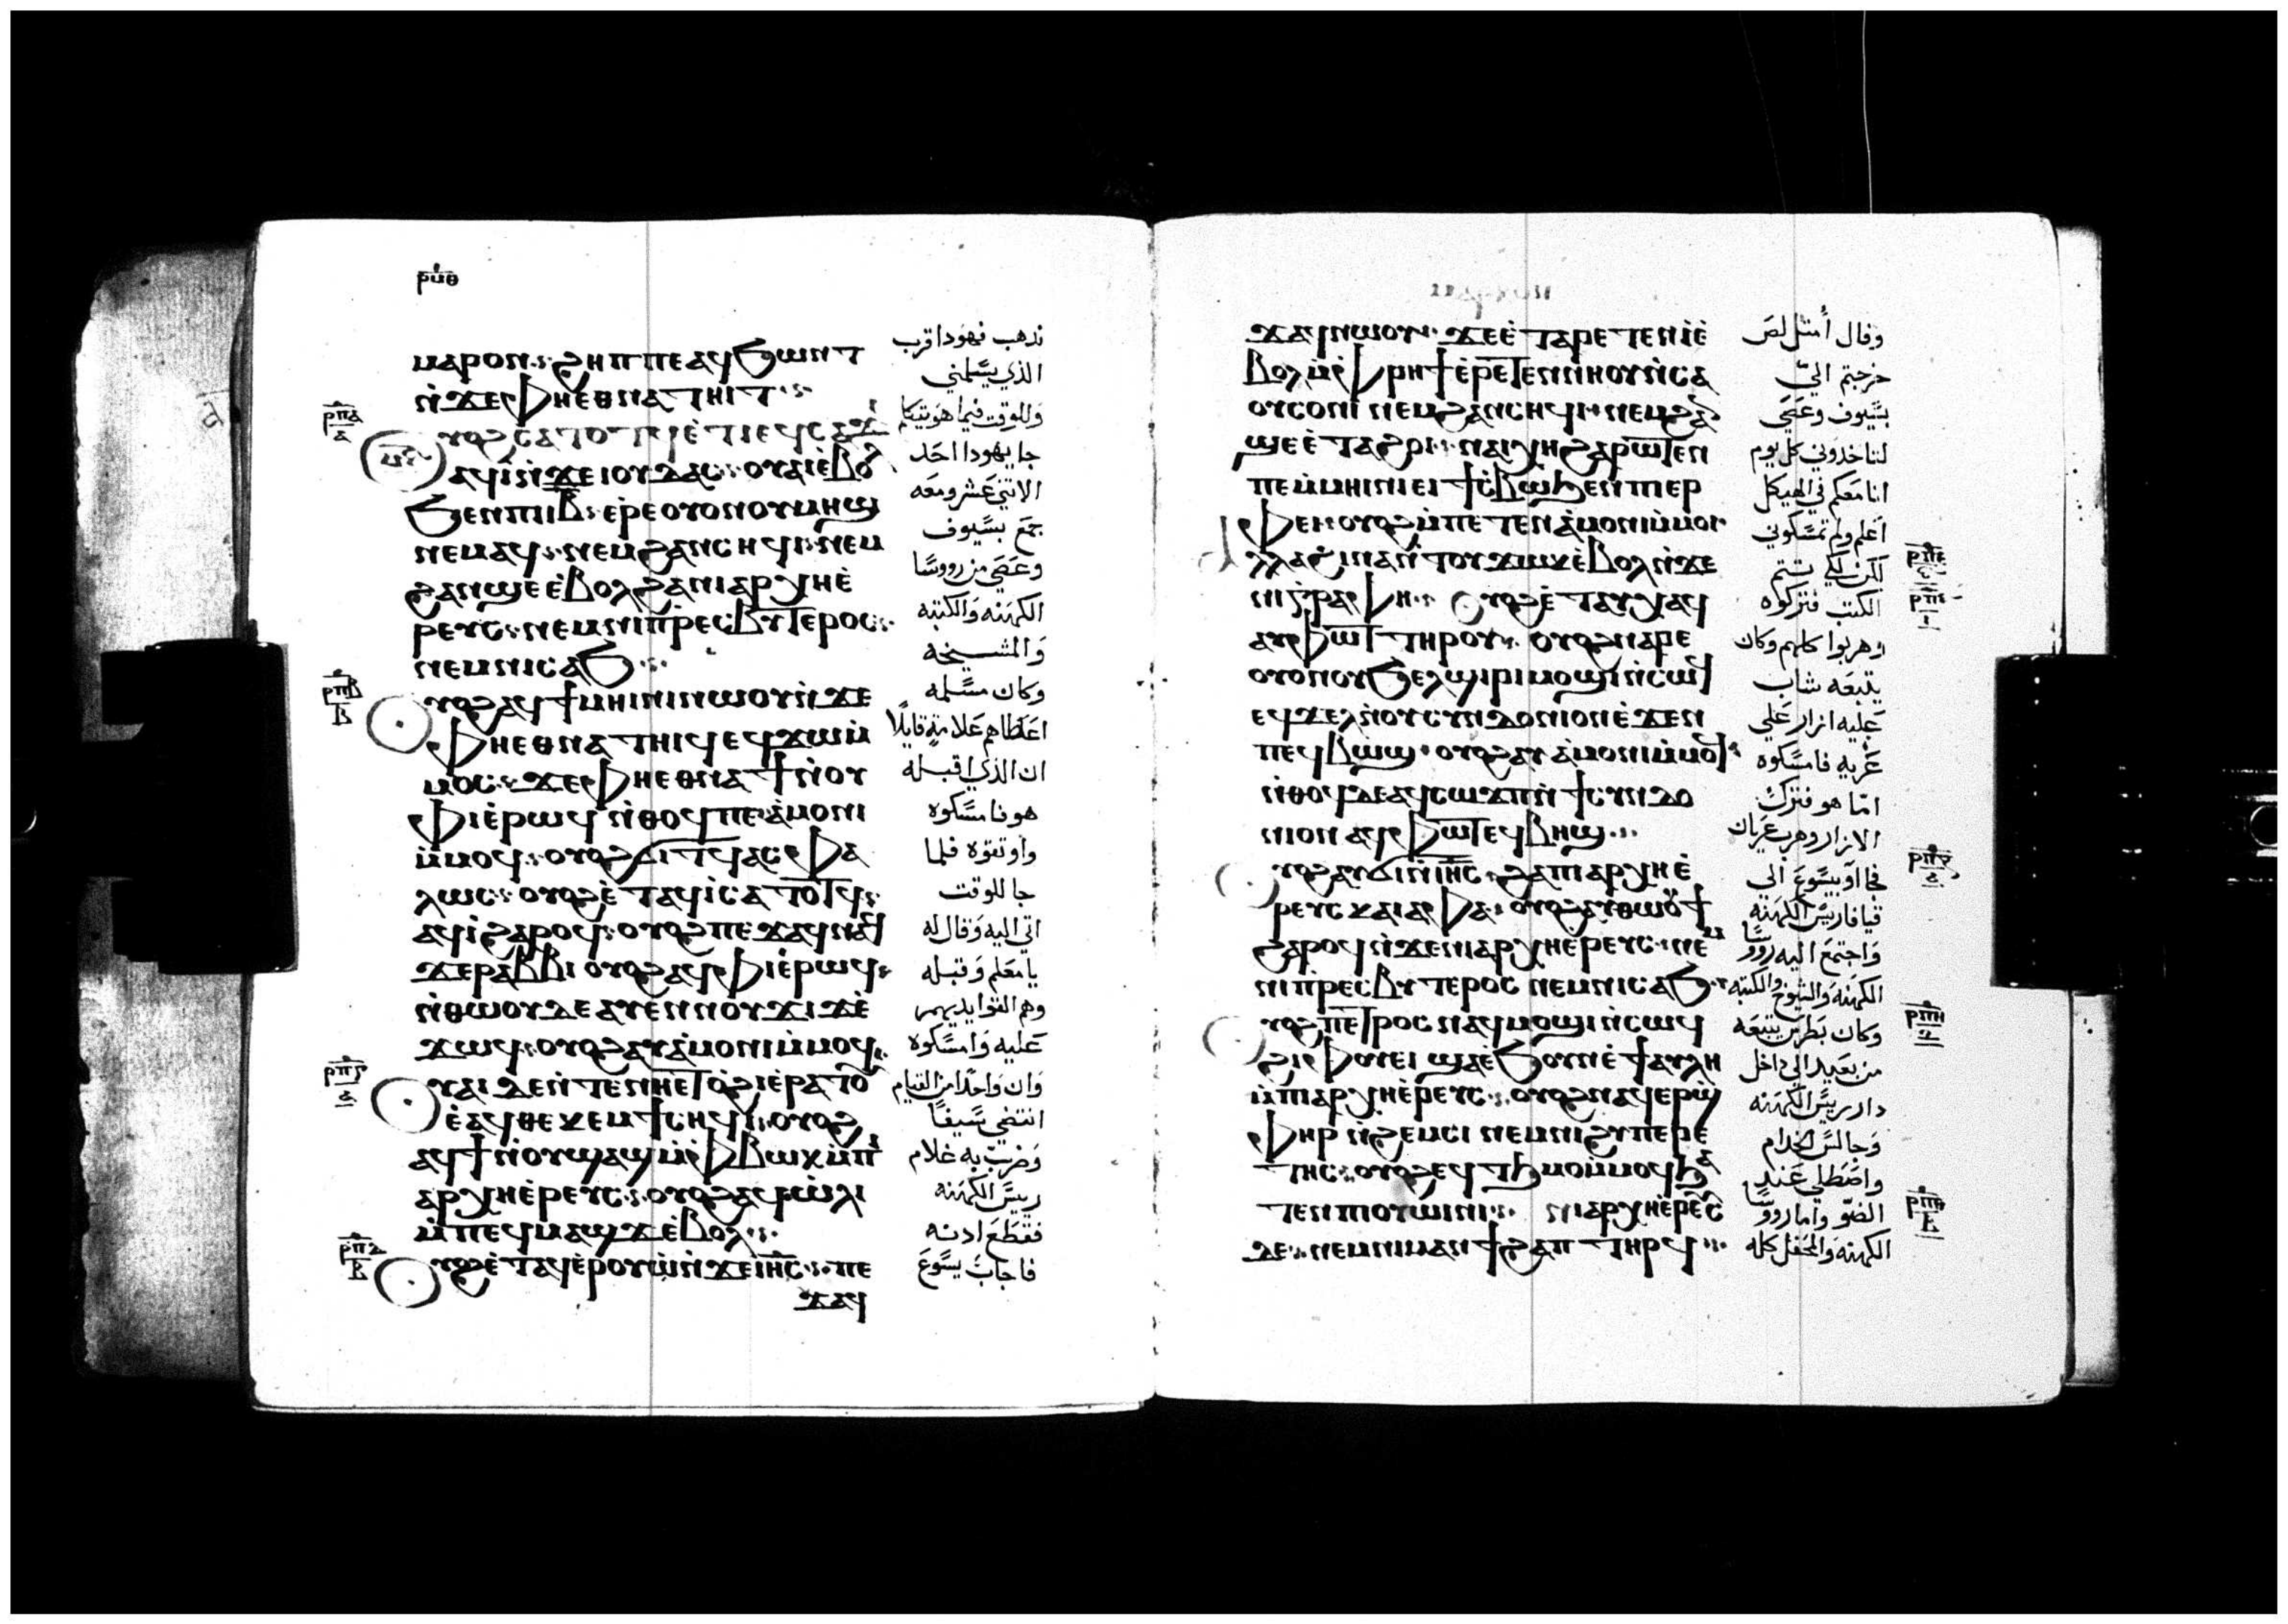 ⲣⲙⲑ
ⲙⲁⲣⲟⲛ ϩⲏⲡⲡⲉ ⲁϥϧⲱⲛⲧ
ⲛ̀ϫⲉⲫⲏⲉⲑⲛⲁⲧⲏⲓⲧ
ⲟⲩⲟϩ ⲥⲁⲧⲟⲧϥ ⲉ̀ⲧⲓ ⲉϥⲥⲁϫⲓ
ⲁϥⲓ̀ ⲛ̀ϫⲉⲓⲟⲩⲇⲁⲥ ⲟⲩⲁⲓ ⲉ̀ⲃⲟⲗ
ϧⲉⲛⲡⲓⲓⲃ ⲉ̀ⲣⲉⲟⲩⲟⲛⲟⲩⲙⲏϣ
ⲛⲉⲙⲁϥ ⲛⲉⲙϩⲁⲛⲥⲏϥⲓ ⲛⲉⲙ
ϩⲁⲛϣⲉ ⲉ̀ⲃⲟⲗϩⲁⲛⲓⲁⲣⲭⲏⲉ̀
ⲣⲉⲩⲥ ⲛⲉⲙⲛⲓⲡⲣⲉⲥⲃⲩⲧⲉⲣⲟⲥ
ⲛⲉⲙⲛⲓⲥⲁϧ
ⲟⲩⲟϩ ⲁϥϯⲙⲏⲓⲛⲓ ⲛⲱⲟⲩ ⲛ̀ϫⲉ
ⲫⲏⲉⲑⲛⲁⲧⲏⲓϥ ⲉϥϫⲱⲙ̀
ⲙⲟⲥ ϫⲉⲫⲏⲉⲑⲛⲁϯⲛ̀ⲟⲩ
ⲫⲓ ⲉ̀ⲣⲱϥ ⲛ̀ⲑⲟϥⲡⲉ ⲁ̀ⲙⲟⲛⲓ
ⲙ̀ⲙⲟϥ ⲟⲩⲟϩ ϭⲓⲧϥ ⲁⲥⲫⲁ
ⲗⲱⲥ ⲟⲩⲟϩ ⲉ̀ⲧⲁϥⲓ̀ ⲥⲁⲧⲟⲧϥ
ⲁϥⲓ̀ ϩⲁⲣⲟϥ ⲟⲩⲟϩ ⲡⲉϫⲁϥ ⲛⲁϥ
ϫⲉⲣⲁⲃⲃⲓ ⲟⲩⲟϩ ⲁϥⲫⲓ ⲉ̀ⲣⲱϥ
ⲛ̀ⲑⲱⲟⲩ ⲇⲉ ⲁⲩⲉⲛⲛⲟⲩϫⲓϫ ⲉ̀
ϫⲱϥ ⲟⲩⲟϩ ⲁⲩⲁ̀ⲙⲟⲛⲓ ⲙ̀ⲙⲟϥ
ⲟⲩⲁⲓ ⲇⲉ ⲛ̀ⲧⲉⲛⲏⲉⲧⲟ̀ϩⲓ ⲉ̀ⲣⲁⲧⲟⲩ
ⲉ̀ⲁϥⲑⲉⲕⲉⲙ ϯⲥⲏϥⲓ ⲟⲩⲟϩ
ⲁϥϯⲛ̀ⲟⲩϣⲁϣ ⲙ̀ⲫⲃⲱⲕ ⲙ̀ⲡⲓ
ⲁⲣⲭⲏⲉ̀ⲣⲉⲩⲥ ⲟⲩⲟϩ ⲁϥⲱ̀ⲗⲓ
ⲙ̀ⲡⲉϥⲙⲁϣϫ ⲉ̀ⲃⲟⲗ
ⲟⲩⲟϩ ⲉ̀ⲧⲁϥⲉ̀ⲣⲟⲩⲱ̀ ⲛ̀ϫⲉⲓⲏⲥ ⲡⲉ
ϫⲁϥ
نذهب فهودا قرب
الذي يسلمني
وللوقت فيما هو يتكلم
جا يهودا احد
الاثني عشر ومعه
جمع بسيوف
وعصي من رووسا
الكهنه والكتبه
والمشيخه
وكان مسلمه
اعطاهم علامة قايلًا
ان الذي اقبله
هو فامسكوه
واوثقوه فلما
جا للوقت
اتي اليه وقال له
يا معلم وقبله
وهم القوا ايديهم
عليه وامسكوه
وان واحدا من القيام
انتضي سيفًا
وضرب به غلام
رييس الكهنه
فقطع ادنه
فاجاب يسوع
ⲣⲡⲁ
ⲣⲡⲃ
ⲣⲡⲅ
ⲣⲡⲇ
ϫⲁϥ ⲛⲱⲟⲩ ϫⲉ ⲉ̀ⲧⲁⲣⲉⲧⲉⲛⲓ̀ ⲉ̀
ⲃⲟⲗ ⲙ̀ⲫⲣⲏϯ ⲉ̀ⲣⲉⲧⲉⲛⲛⲏⲟⲩ ⲛ̀ⲥⲁ
ⲟⲩⲥⲟⲛⲓ ⲛⲉⲙϩⲁⲛⲥⲏϥⲓ ⲛⲉⲙϩⲁⲛ
ϣⲉ ⲉ̀ⲧⲁϩⲟⲓ ⲛⲁⲓⲭⲏ ϩⲁⲣⲱⲧⲉⲛ
ⲡⲉ ⲙ̀ⲙⲏⲓⲛⲓ ⲉⲓϯⲥ̀ⲃⲱ ϧⲉⲛⲡⲓⲉⲣ
ⲫⲉⲓ ⲟⲩⲟϩ ⲙ̀ⲡⲉⲧⲉⲛⲁ̀ⲙⲟⲛⲓ ⲙ̀ⲙⲟⲓ
ⲁⲗⲗⲁ ϩⲓⲛⲁ ⲛ̀ⲧⲟⲩϫⲱⲕ ⲉ̀ⲃⲟⲗ ⲛ̀ϫⲉ
ⲛⲓⲅⲣⲁⲫⲏ ⲟⲩⲟϩ ⲉ̀ⲧⲁⲩⲭⲁϥ
ⲁⲩⲫⲱⲧ ⲧⲏⲣⲟⲩ ⲟⲩⲟϩ ⲛⲁⲣⲉ
ⲟⲩⲟⲛⲟⲩϧⲉⲗϣⲓⲣⲓ ⲙⲟϣⲓ ⲛ̀ⲥⲱϥ
ⲉϥϫⲉⲗ ⲛ̀ⲟⲩⲥⲩⲛⲇⲟⲛⲓⲟⲛ ⲉ̀ϫⲉⲛ
ⲡⲉϥⲃⲱϣ ⲟⲩⲟϩ ⲁⲩⲁ̀ⲙⲟⲛⲓ ⲙ̀ⲙⲟϥ
ⲛ̀ⲑⲟϥ ⲇⲉ ⲁϥⲥⲱϫⲡ ⲛ̀ϯⲥⲩⲛⲇⲟ
ⲛⲓⲟⲛ ⲁϥⲫⲱⲧ ⲉϥⲃⲏϣ
ⲟⲩⲟϩ ⲁⲩϭⲓ ⲛ̀ⲓⲏⲥ ϩⲁⲡⲓⲁⲣⲭⲏⲉ̀
ⲣⲉⲩⲥ ⲕⲁⲓⲁⲫⲁ ⲟⲩⲟϩ ⲁⲩⲑⲱⲟⲩϯ
ϩⲁⲣⲟϥ ⲛ̀ϫⲉⲛⲓⲁⲣⲭⲏⲉ̀ⲣⲉⲩⲥ ⲛⲉⲙ
ⲛⲓⲡⲣⲉⲥⲃⲩⲧⲉⲣⲟⲥ ⲛⲉⲙⲛⲓⲥⲁϧ
ⲟⲩⲟϩ ⲡⲉⲧⲣⲟⲥ ⲛⲁϥⲙⲟϣⲓ ⲛ̀ⲥⲱϥ
ϩⲓⲫⲟⲩⲉⲓ ϣⲁⲉ̀ϧⲟⲩⲛ ⲉ̀ϯⲁⲩⲗⲏ
ⲙ̀ⲡⲓⲁⲣⲭⲏⲉ̀ⲣⲉⲩⲥ ⲟⲩⲟϩ ⲛⲁϥⲉⲣϣ̀
ⲫⲏⲣ ⲛ̀ϩⲉⲙⲥⲓ ⲛⲉⲙⲛⲓϩⲩⲡⲉⲣⲉ
ⲧⲏⲥ ⲟⲩⲟϩ ⲉϥⲧϧⲙⲟ ⲙ̀ⲙⲟϥ ϧⲁ
ⲧⲉⲛⲡⲓⲟⲩⲱⲓⲛⲓ ⲛⲓⲁⲣⲭⲏⲉ̀ⲣⲉⲩⲥ
ⲇⲉ ⲛⲉⲙⲛⲓⲙⲁⲛϯϩⲁⲡ ⲧⲏⲣϥ
وقال أمثل لص
خرجتم الي
بسيوف وعصي
لتاخدوني كل يوم
انا معكم في الهيكل
اعلم ولم تمسكوني
لكن لكي تتم
الكتب فتركوه
وهربوا كلهم وكان
يتبعه شاب
عليه ازار علي
عريه فامسكوه
اما هو فترك
الازار وهرب عريان
فجااو بيسوع الي
قيافا رييس الكهنه
واجتمع اليه رووسا
الكهنه والشيوخ والكتبه
وكان بطرس يتبعه
من بعيد الي داخل
دار رييس الكهنه
وجالس الخدام
واصطلي عند
الضوو واما رووسا
الكهنه والمحفل كله
ⲣⲡⲉ
ⲣⲡⲋ
ⲣⲡⲍ
ⲣⲡⲏ
ⲣⲡⲑ